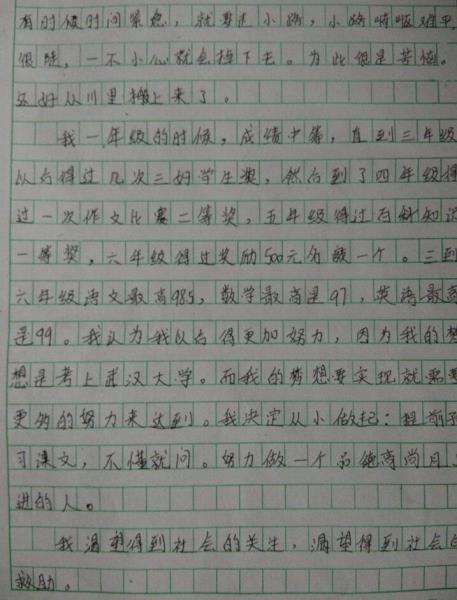 有时候时间紧急，就要走小路，小路崎岖难平，
很陡，一不小心就会掉下去。为此很是苦恼。
还好从川里搬上来了。
我一年级的时候，成绩中等，直到三年级
以后得过几次三好学生奖，然后到了四年级得
过一次作文比赛二等奖，五年级得过百科知识
一等奖，六年级得过奖励500元名额一个。三到
六年级语文最高98.5，数学最高是97，英语最高
是99。我认为我以后得更加努力，因为我的梦
想是考上武汉大学。而我的梦想要实现就需要
更多的努力来达到。我决定从小做起：提前预
习课文，不懂就问。努力做一个品德高尚月
进的人。
我渴望得到社会的关生，渴望得到社会的
救助。